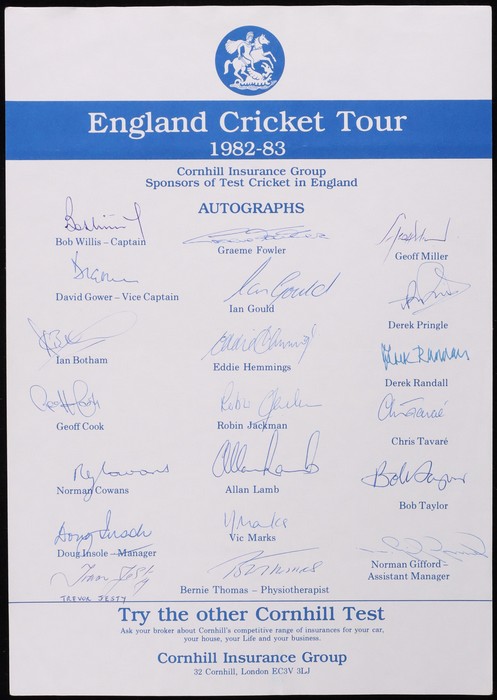 England Cricket Tour
1982-83
Cornhill Insurance Group
Sponsors of Test Cricket in England
AUTOGRAPHS
Bob Willis – Captain
Graeme Fowler
Geoff Miller
David Gower – Vice Captain
Ian Gould
Ian Gould
Derek Pringle
Ian Botham
Eddie Hemmings
Eddie Hemmings
Derek Randall
Derek Randall
Geoff Cook
Geoff Cook
Robin Jackman
Chris Tavaré
Norman Cowans
Allan Lamb
Allan Lamb
Bob Taylor
Bob Taylor
Doug Insole
Doug Insole – Manager
V Marks
Vic Marks
Norman Gifford –
Assistant Manager
Trevor Jesty
TREVOR JESTY
Bernie Thomas – Physiotherapist
Try the other Cornhill Test
Ask your broker about Cornhill's competitive range of insurances for your car,
your house, your Life and your business.
Cornhill Insurance Group
32 Cornhill, London EC3V 3LJ